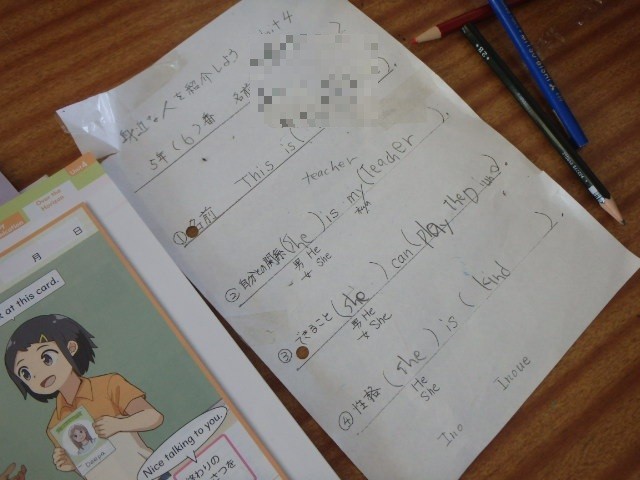 Unit 4
身近な人を紹介しよう
5年(6)番 名前
①名前 This is(
teacher
②自分との関係(She) is my(teacher).
男 He
女 She
③できること(she) can(play the
男 He
女 She
④性格(she) is (kind).
He
She
Ino Inoue
Over the Horizon
月 日
at this card.
Nice talking to you.
2B